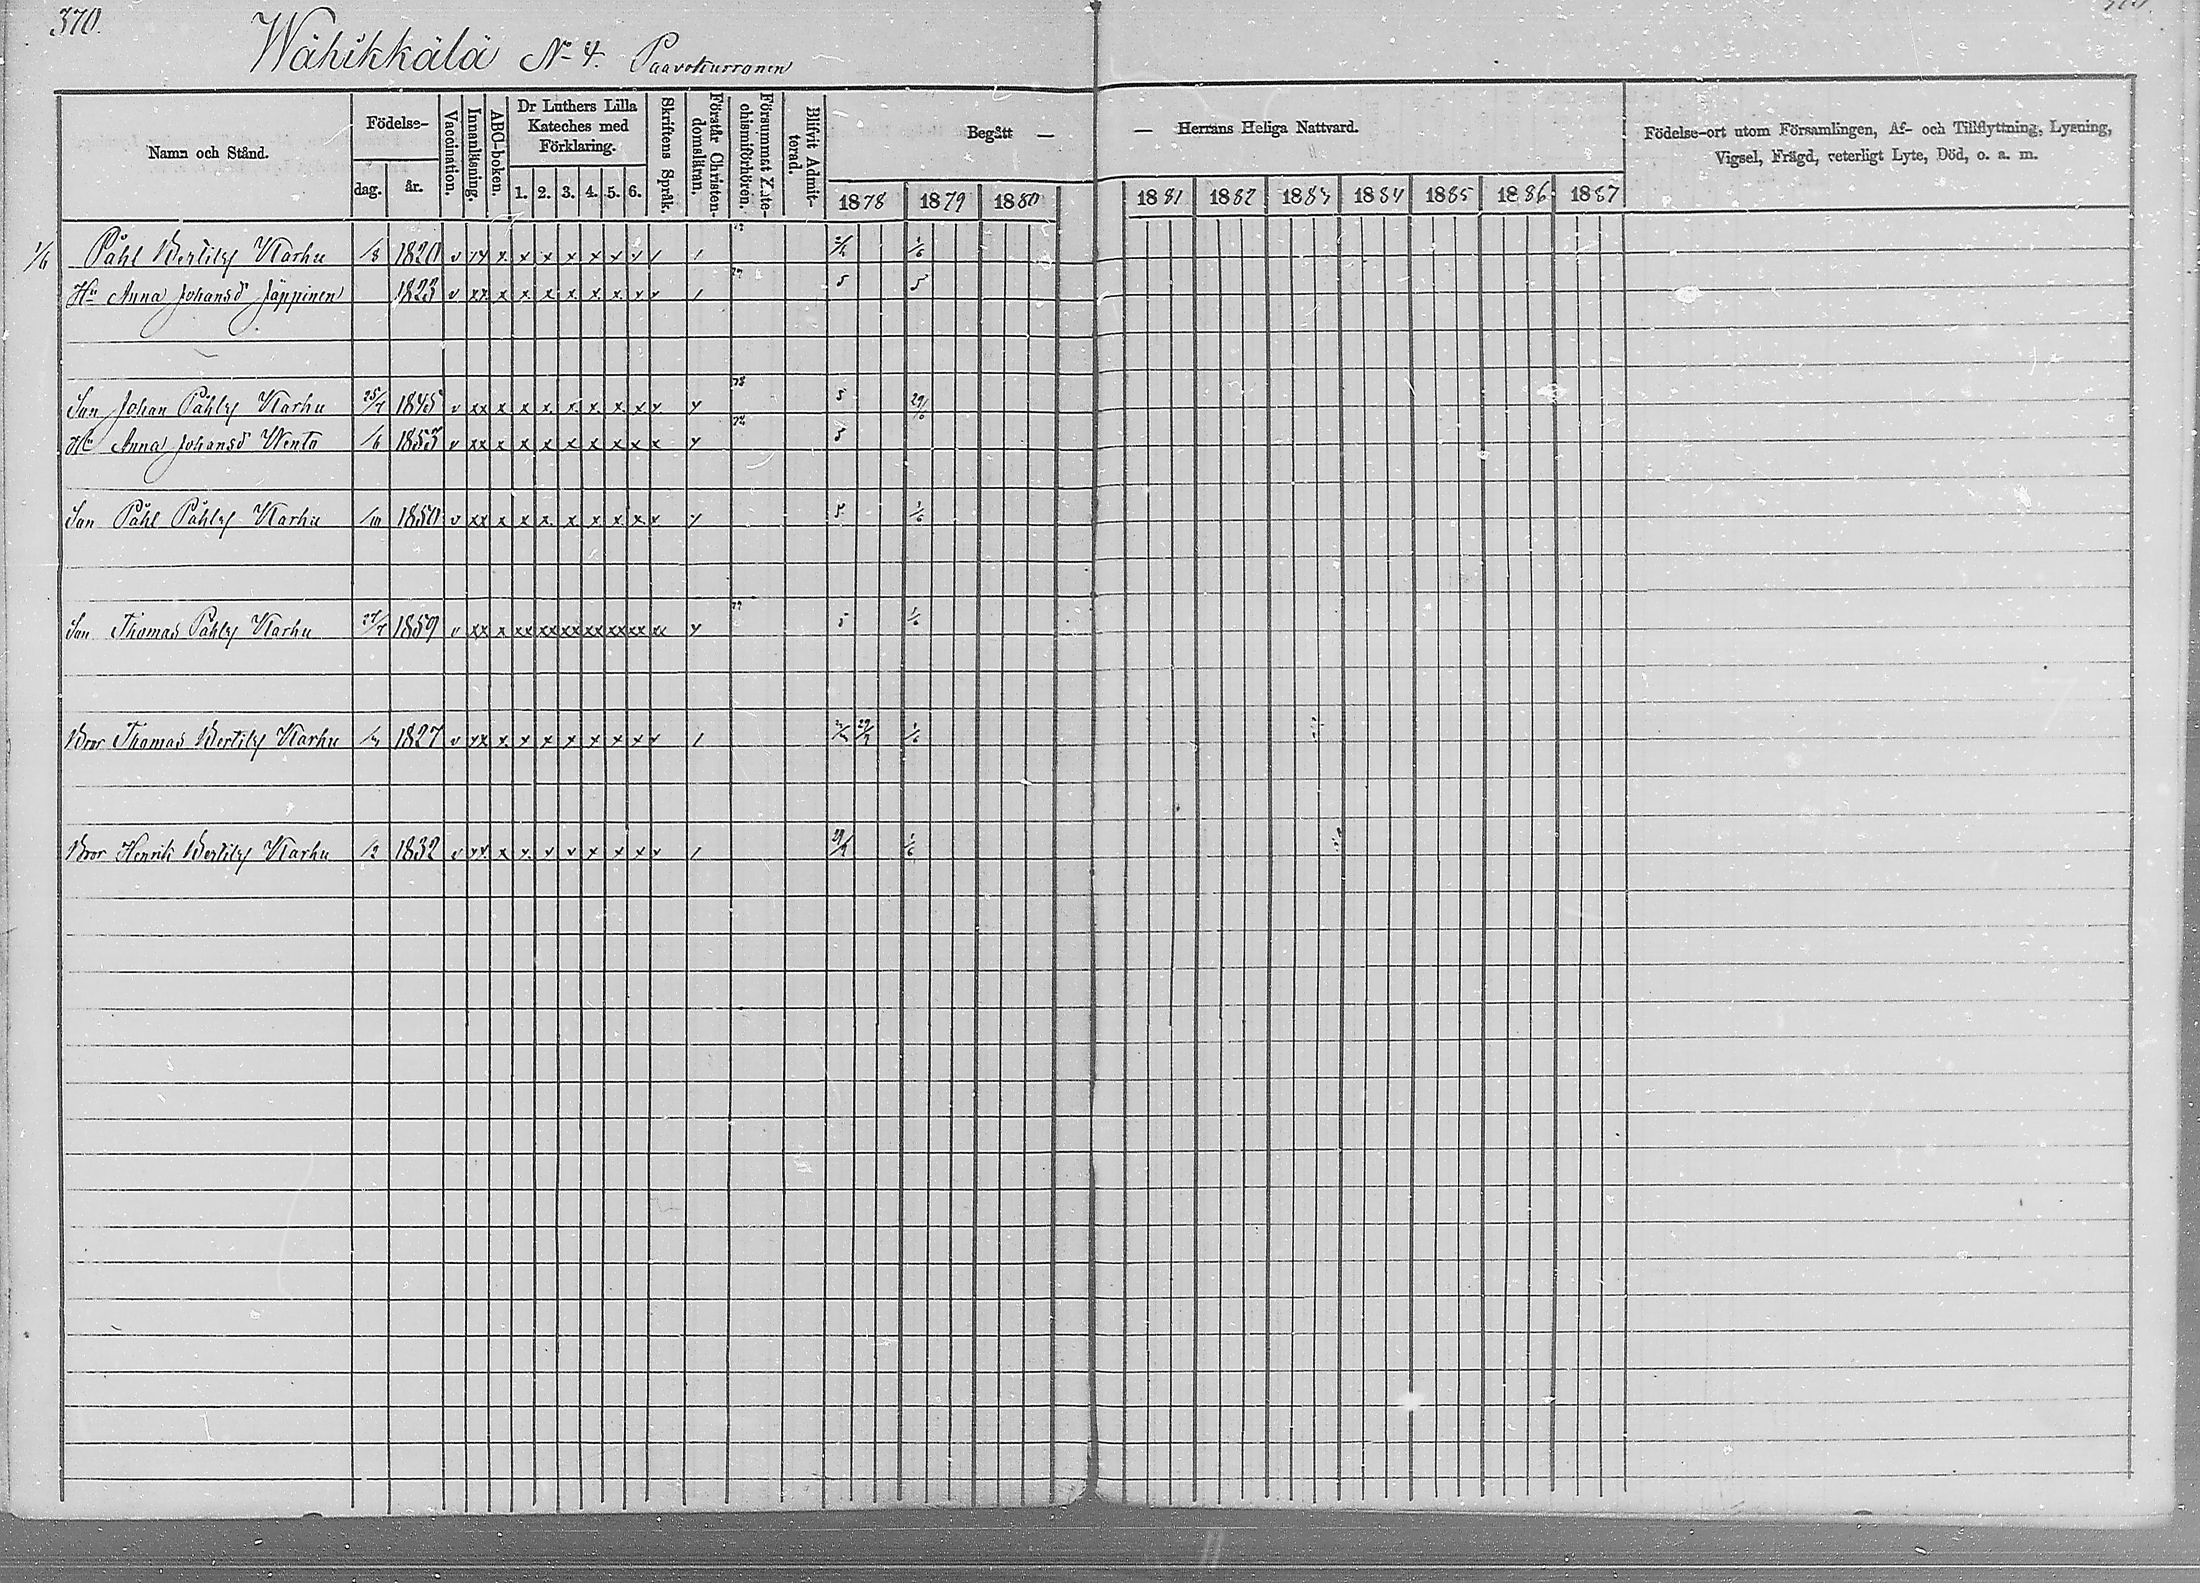 370.
Wähikkälä No 4. Paavokurronen
Namn och Stånd.
Födelse-
dag.
år.
Vaccination.
Innanläsning.
ABC-boken.
Dr Luthers Lilla
Kateches med
Förklaring.
1. 2. 3. 4. 5. 6.
Skriftens Språk.
Förstår Christen-
domsläran.
Försummat Kate-
chismiförhören.
Blifvit Admit-
terad.
Begått —
— Herrans Heliga Nattvard.
1878 1879 1880 1881 1882 1883 1884 1885 1886 1887
Födelse-ort utom Församlingen, Af- och Tillflyttning, Lysning,
Vigsel, Frägd, veterligt Lyte, Död, o. a. m.
1/6 Påhl Bertilsf Karhu /8 1820 v xx x x x x x x x / / 1/6
Hu Anna Johansd Jäppinen 1823 v xx x x x x x x v v / 79 5 5
Son Johan Påhlsf Karhu 25/7 1845 v xx x x x x x x x v y 78 5 29/6
Hu Anna Johansd Wento /6 1853 v xx x x x x x x x x y 5
Son Påhl Påhlsf Karhu /10 1850 v xx x x x x x x x v y 5 1/6
Son Thomas Påhlsf Karhu 27/7 1859 v xx x xx xx xx xx xx xx xx y 79 5 1/6
Bror Thomas Bertilsf Karhu 1827 v xx x x x x x x x v / 29/9 1/6
Bror Henrik Bertilsf Karhu /2 1832 v xx x x v v x x x v / 29/9 1/6